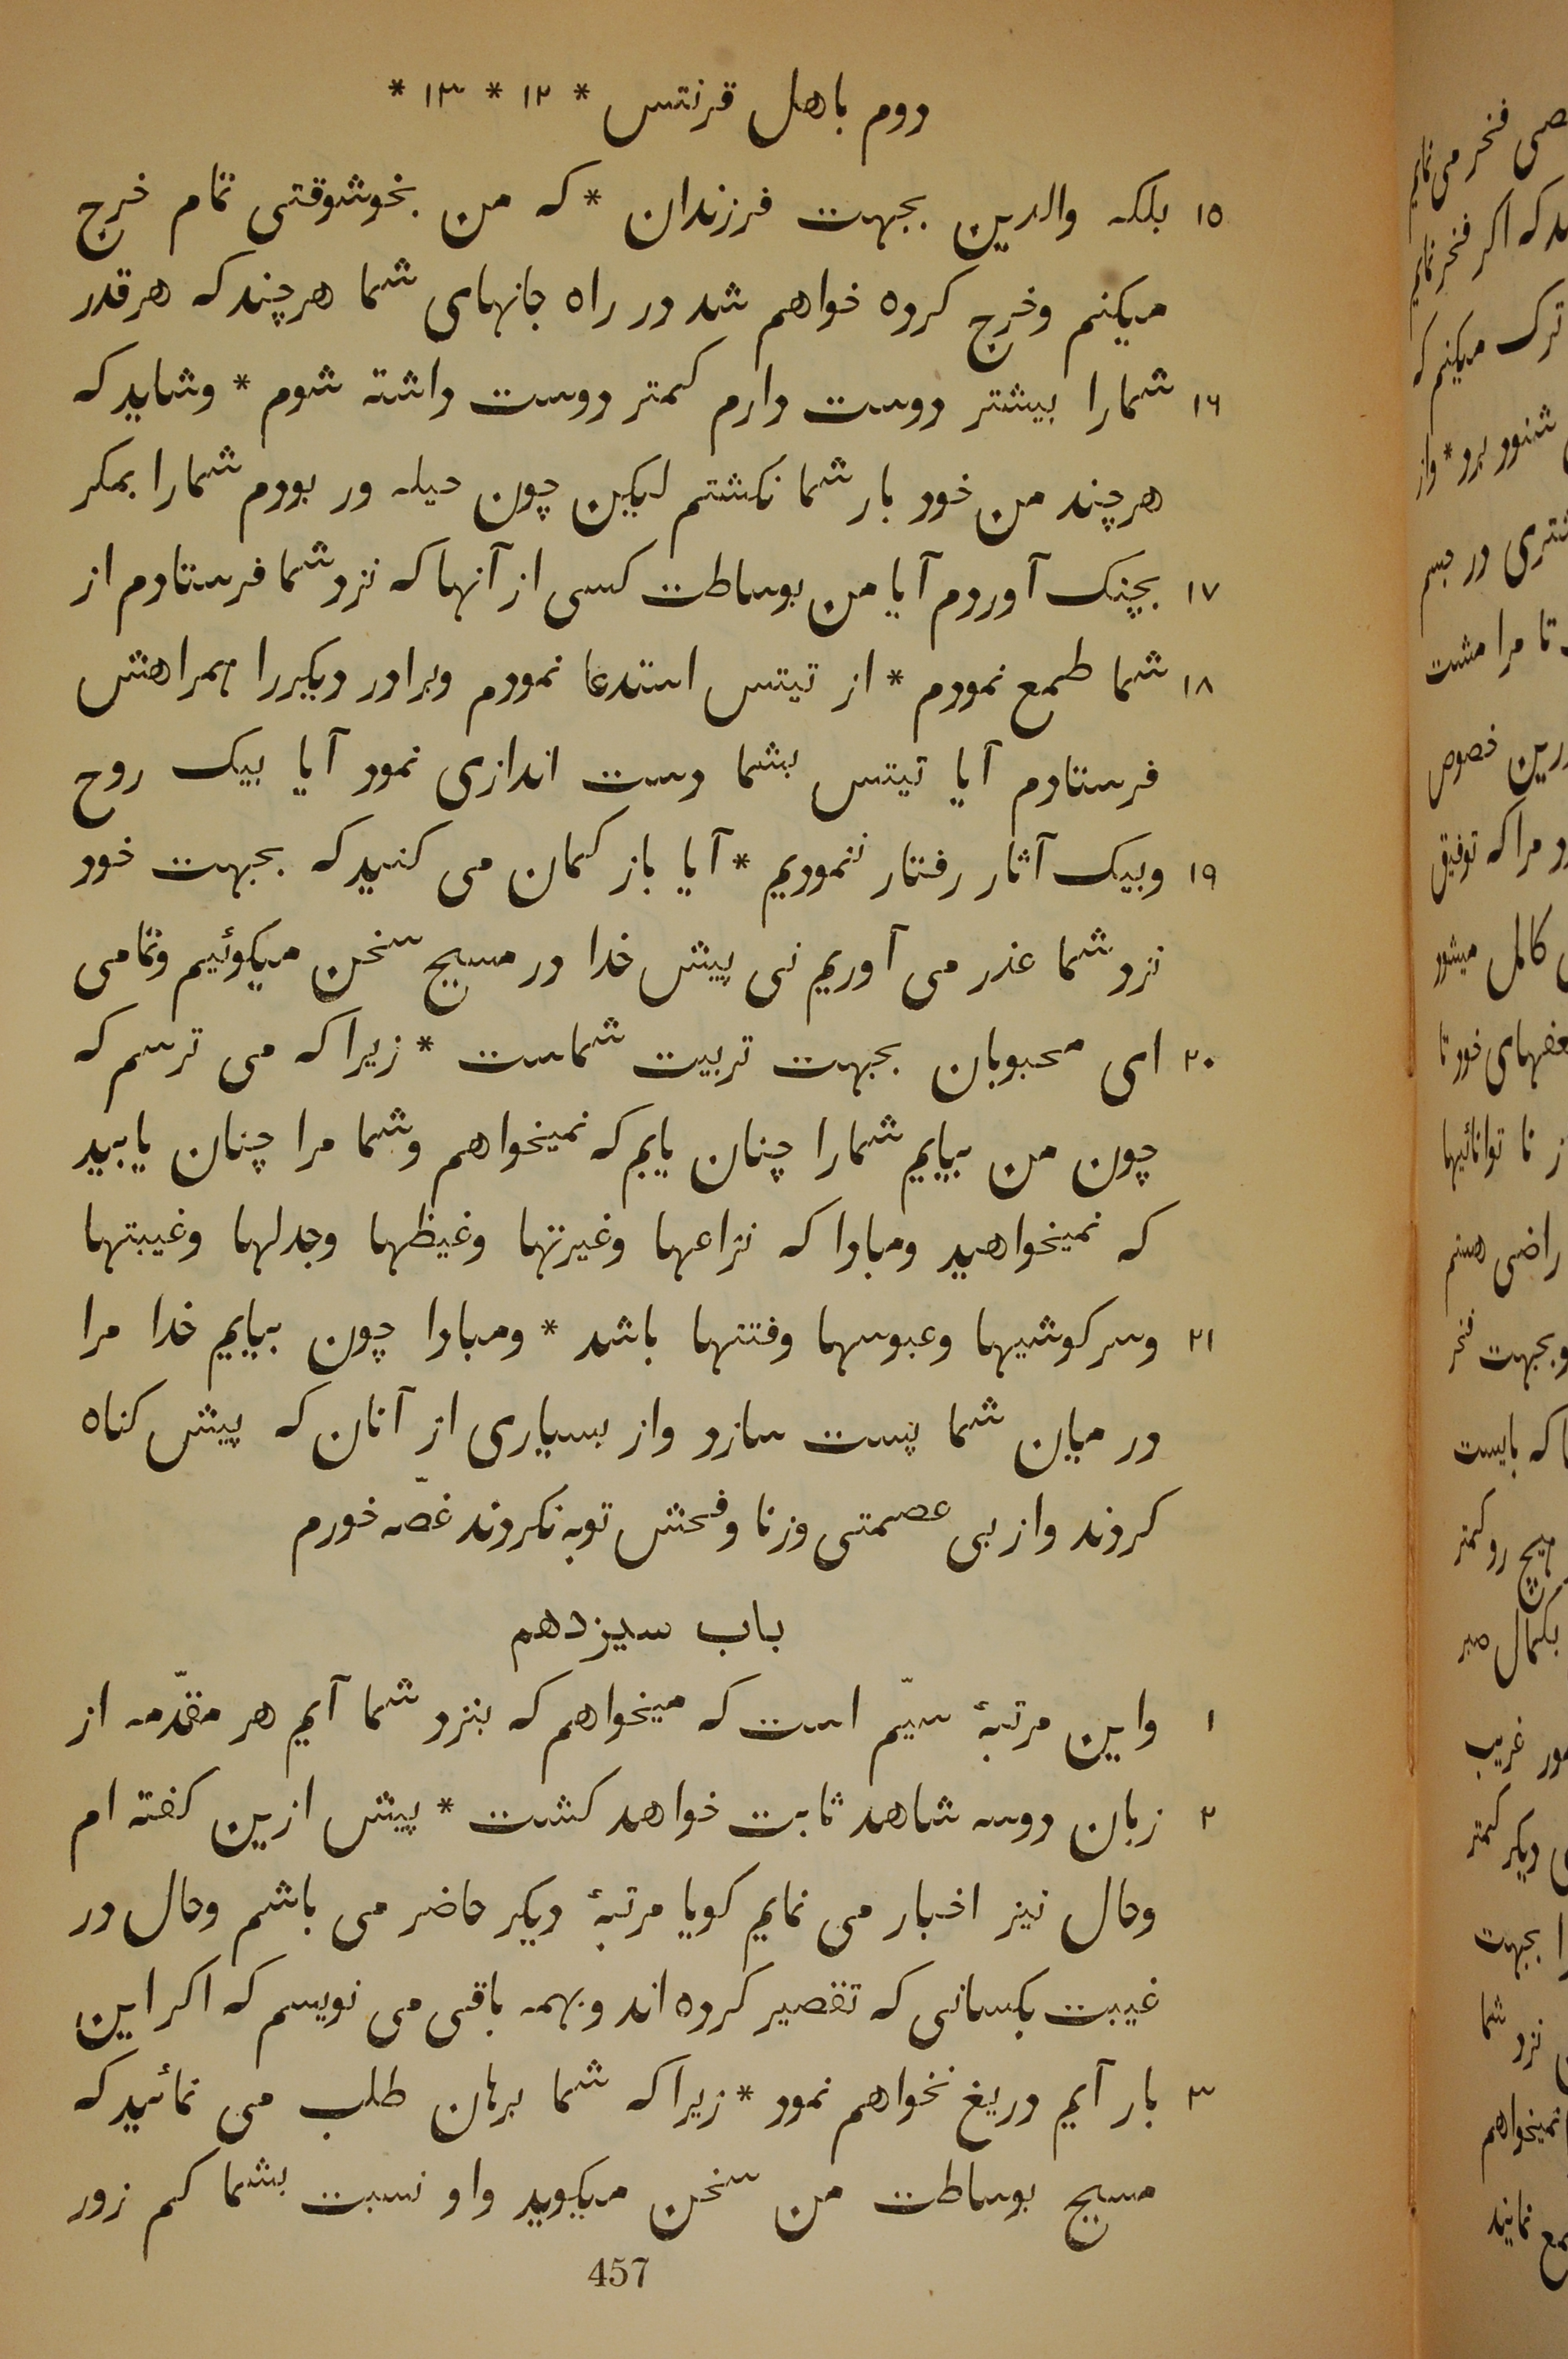 دوم باهل قرنتس * ۱۲ * ۱۳ *
۱۵ بلکه والدین بجهت فرزندان * که من بخوشوقتی تمام خرج
میکنم وخرج کرده خواهم شد در راه جانهای شما هرچند که هرقدر
۱۶ شمارا بیشتر دوست دارم کمتر دوست داشته شوم * وشاید که
هرچند من خود بار شما نکشتم لیکین چون حیله ور بودم شمارا بمکر
۱۷ بچنک آوردم آیا من بوساطت کسی از آنها که نزد شما فرستادم از
۱۸ شما طمع نمودم * از تیتس استدعا نمودم وبرادر دیکررا همراهش
فرستادم آیا تیتس بشما دست اندازی نمود آیا بیک روح
۱۹ وبیک آثار رفتار ننمودیم * آیا باز کمان می کنید که بجهت خود
نزد شما عذر می آوریم نی پیش خدا در مسیح سخن میکوئیم وتمامی
۲۰ ای محبوبان بجهت تربیت شماست * زیرا که می ترسم که
چون من بیایم شمارا چنان یابم که نمیخواهم وشما مرا چنان یابید
که نمیخواهید ومبادا که نزاعها وغیرتها وغیظها وجدلها وغیبتها
۲۱ وسرکوشیها وعبوسها وفتنها باشد * ومبادا چون بیایم خدا مرا
در میان شما پست سازد واز بسیاری از آنان که پیش کناه
کردند واز بی عصمتی وزنا وفحش توبه نکردند غصّه خورم
باب سیزدهم
۱ واین مرتبهٔ سیّم است که میخواهم که بنزد شما آیم هر مقدّمه از
۲ زبان دوسه شاهد ثابت خواهد کشت * پیش ازین کفته ام
وحال نیز اخبار می نمایم کویا مرتبهٔ دیکر حاضر می باشم وحال در
غیبت بکسانی که تقصیر کرده اند وبهمه باقی می نویسم که اکر این
۳ بار آیم دریغ نخواهم نمود * زیرا که شما برهان طلب می نمائید که
مسیح بوساطت من سخن میکوید واو نسبت بشما کم زور
457